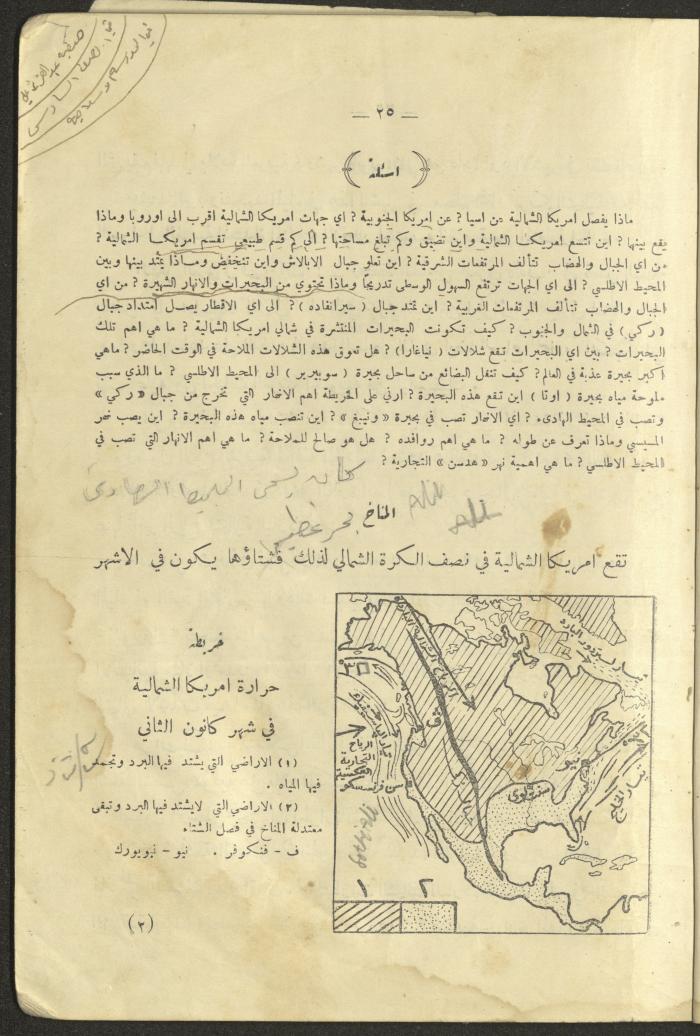 — ٢٥ —
( اسئلة )
ماذا يفصل امريكا الشمالية عن اسيا ? عن امريكا الجنوبية ? اي جهات امريكا الشمالية اقرب الى اوروبا وماذا
يقع بينها ? اين تتسع امريكا الشمالية واين تضيق وكم تبلغ مساحتها ? الى كم قسم طبيعي تقسم امريكا الشمالية ?
من اي الجبال والهضاب تتألف المرتفعات الشرقية ? اين تعلو جبال الابالاش واين تنخفض وماذا يمتد بينها وبين
المحيط الاطلسي ? الى اي الجهات ترتفع السهول الوسطى تدريجاً وماذا تحتوي من البحيرات والانهار الشهيرة ? من اي
الجبال والهضاب تتألف المرتفعات الغربية ? اين تمتد جبال ( سيرانفاده ) ? الى اي الاقطار يصل امتداد جبال
( ركي ) في الشمال والجنوب ? كيف تكونت البحيرات المنتشرة في شمالي امريكا الشمالية ? ما هي اهم تلك
البحيرات ? بين اي البحيرات تقع شلالات ( نياغارا ) ? هل تعوق هذه الشلالات الملاحة في الوقت الحاضر ? ماهي
اكبر بحيرة عذبة في العالم ? كيف تنقل البضائع من ساحل بحيرة ( سوبيرير ) الى المحيط الاطلسي ? ما الذي سبب
ملوحة مياه بحيرة ( اوتا ) اين تقع هذه البحيرة ? ارني على الخريطة اهم الانهار التي تخرج من جبال « ركي »
وتصب في المحيط الهادىء ? اي الانهار تصب في بحيرة « ونيبغ » ? اين تنصب مياه هذه البحيرة ? اين يصب نهر
المسيسبي وماذا تعرف عن طوله ? ما هي اهم روافده ? هل هو صالح للملاحة ? ما هي اهم الانهار التي تصب في
المحيط الاطلسي ? ما هي اهمية نهر « هدسن » التجارية ?
كان يسمى المحيط الهادئ
المناخ
تقع امريكا الشمالية في نصف الكرة الشمالي لذلك فشتاؤها يكون في الاشهر
خريطة
حرارة امريكا الشمالية
في شهر كانون الثاني
(١) الاراضي التي يشتد فيها البرد وتجمد
فيها المياه .
(٢) الاراضي التي لايشتد فيها البرد وتبقى
معتدلة المناخ في فصل الشتاء
ف – فنكوفر . نيو – نيويورك
الرياح الشمالية الباردة
تيار لبردور البارد
الرياح
التجارية
العكسية
سن فرنسسكو
ف
نيو
تيار الخليج
١ ٢
(٢)